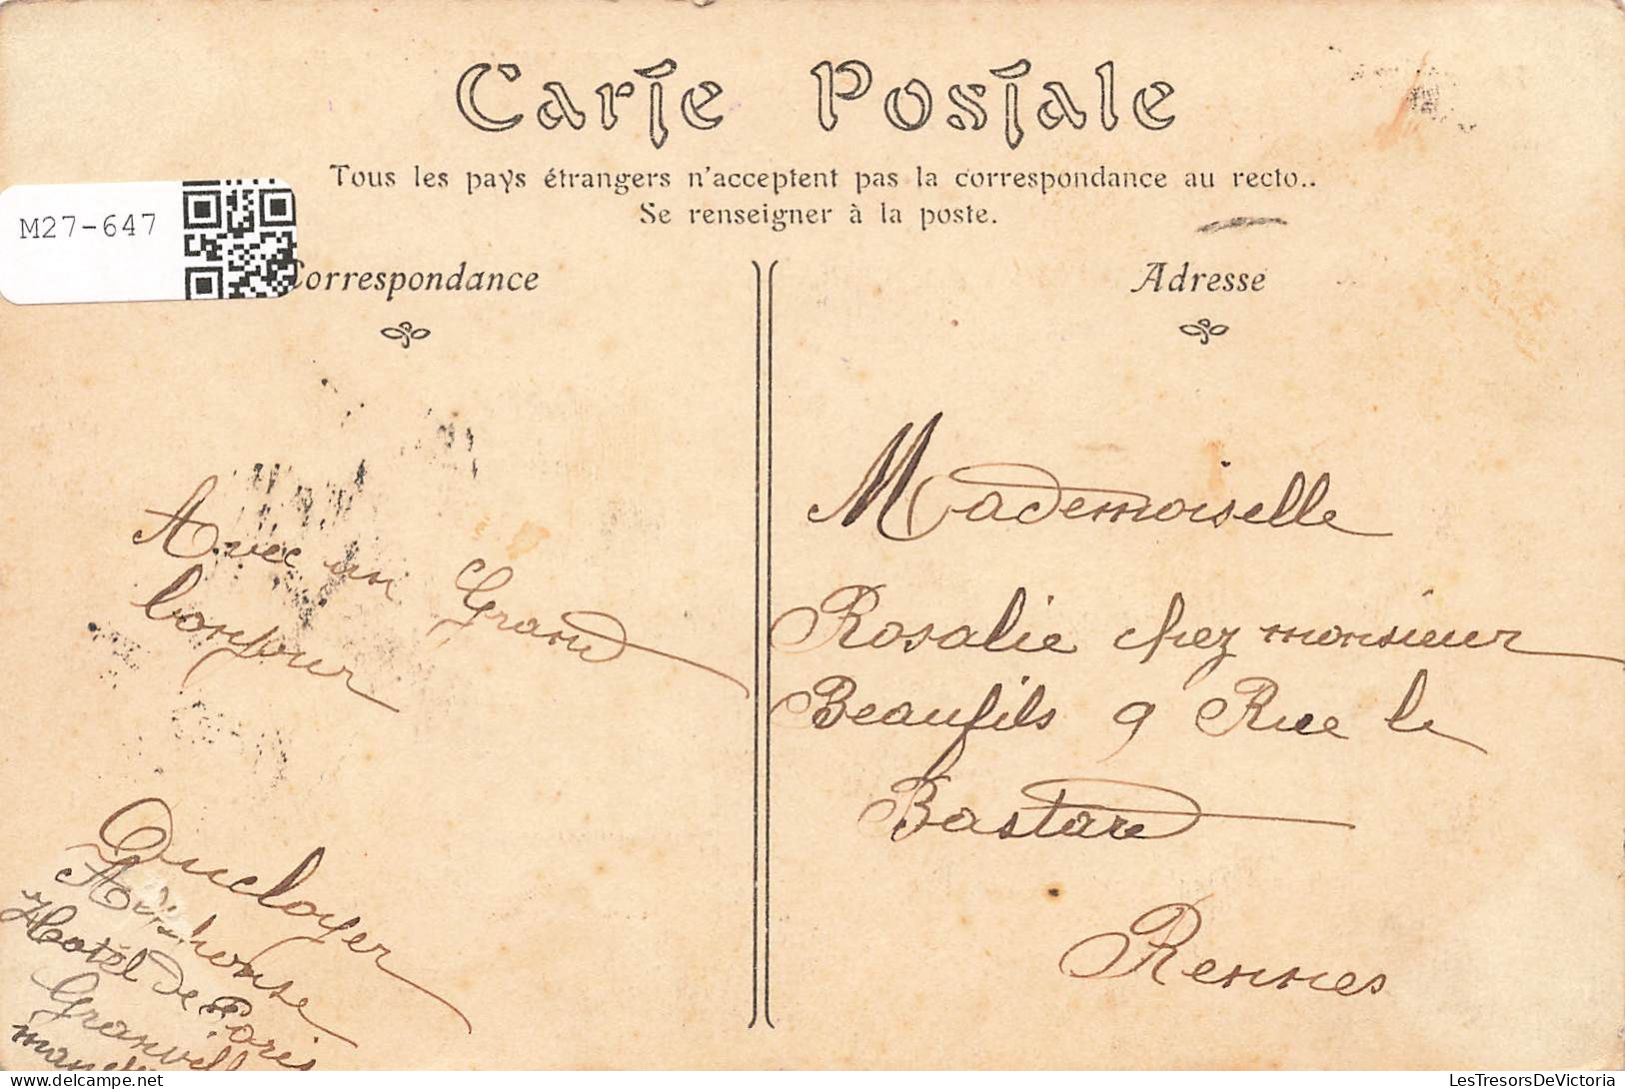 Carte Postale
Tous les pays étrangers n'acceptent pas la correspondance au recto..
Se renseigner à la poste.
M27-647
Correspondance
Adresse
Avec un Grand
bonjour
Mademoiselle
Rosalie chez monsieur
Beaufils 9 Rue le
Bastard
Rennes
Ducloyer
Alphonse
Hotel de Paris
Granvill
manche
LesTresorsDeVictoria